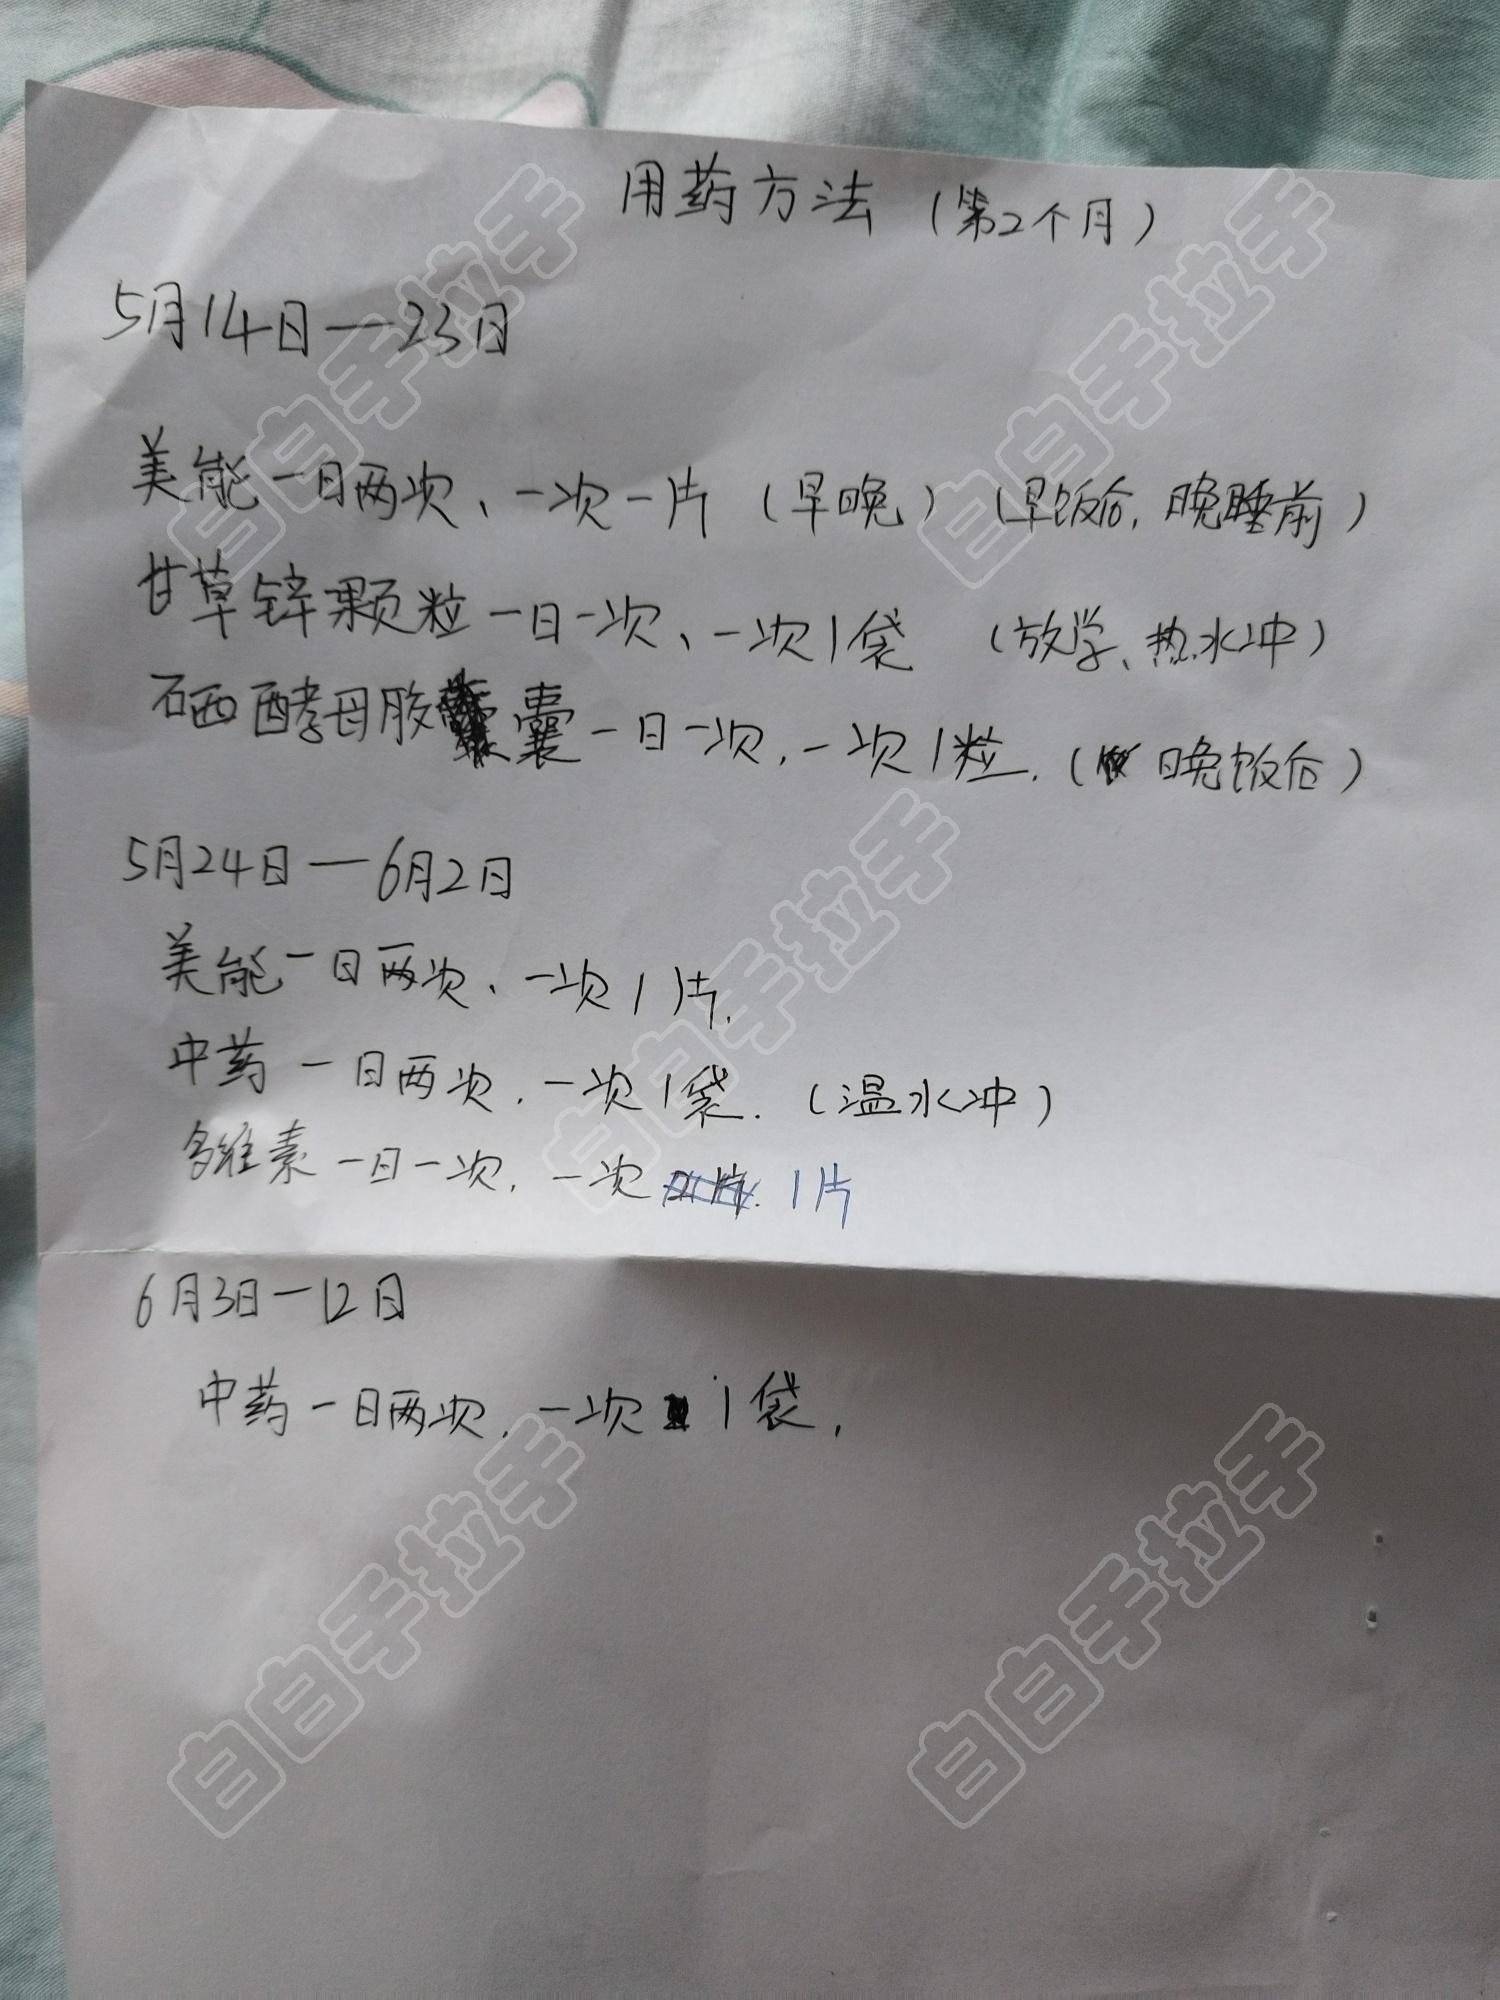 用药方法（第2个月）
5月14日—23日
美能一日两次、一次一片（早晚）（早饭后，晚睡前）
甘草锌颗粒一日一次、一次1袋（放学、热水冲）
硒酵母胶囊一日一次，一次1粒.（晚饭后）
5月24日—6月2日
美能一日两次、一次1片.
中药一日两次，一次1袋.（温水冲）
多维素一日一次，一次1片
6月3日—12日
中药一日两次，一次1袋，
白白手拉手
白白手拉手
白白手拉手
白白手拉手
白白手拉手